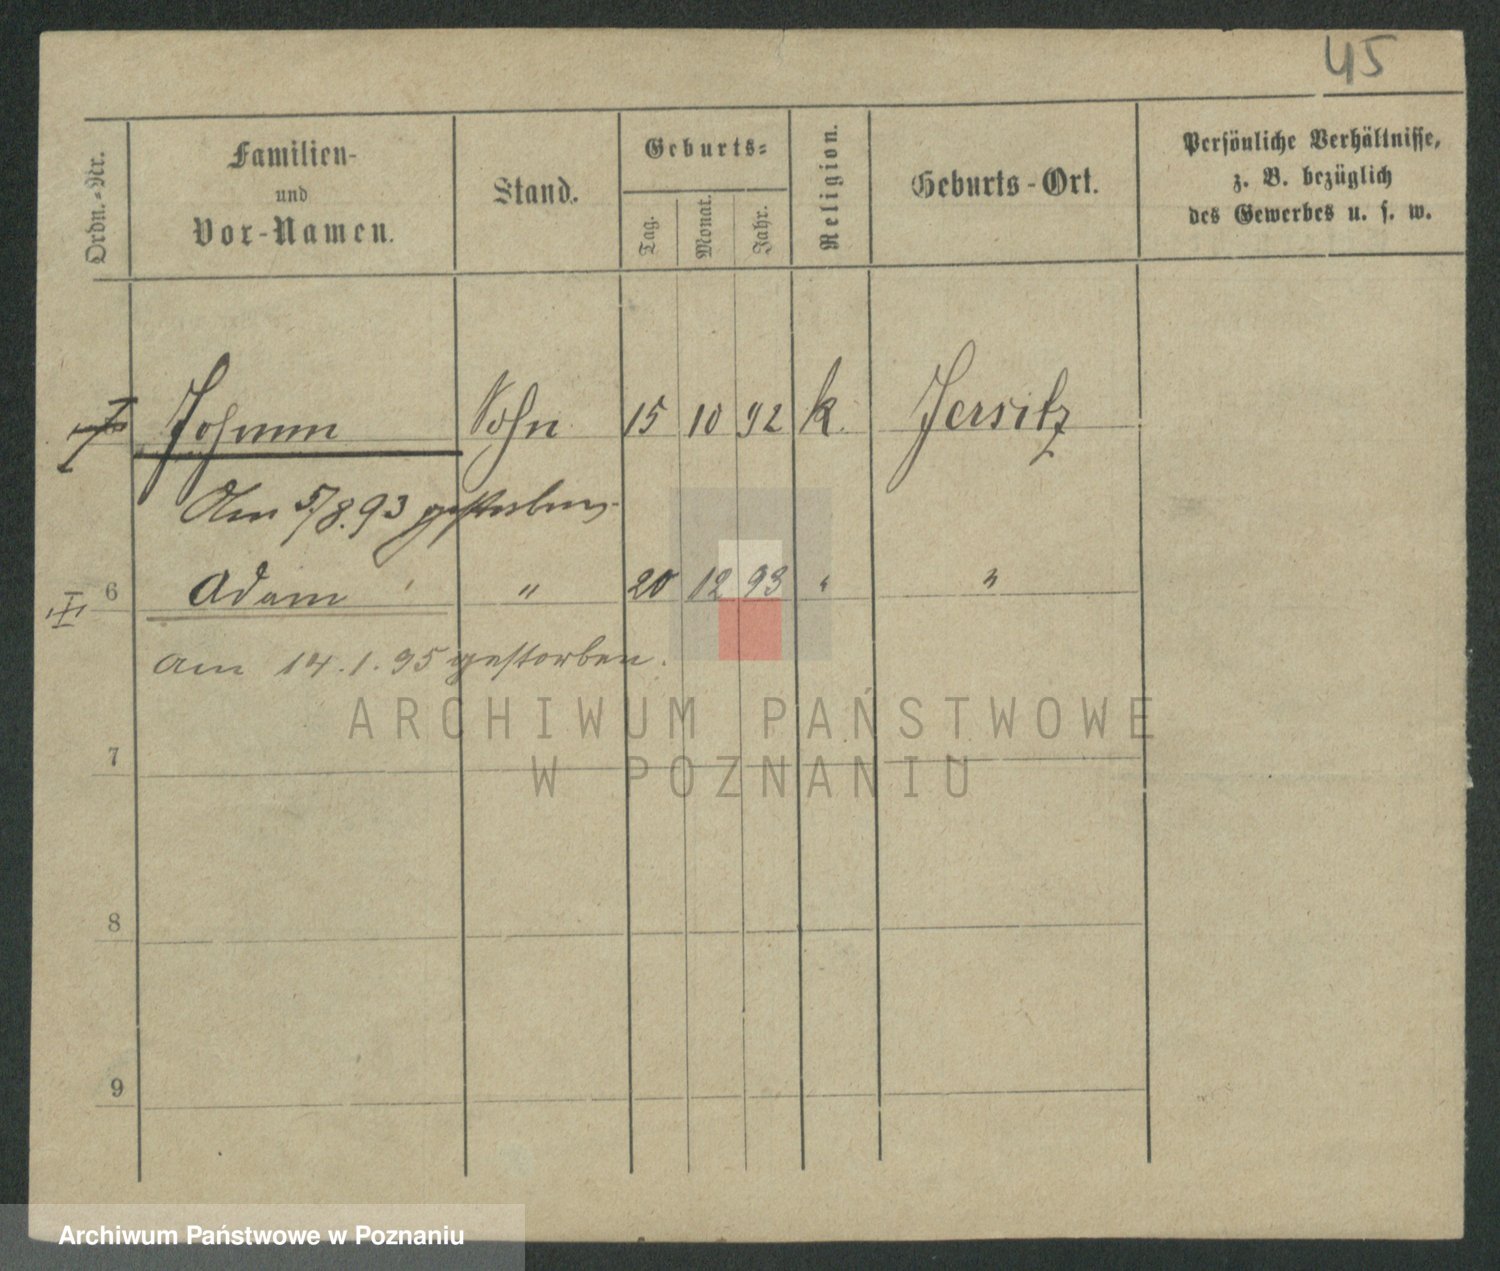 45
Ordn.-Nr.
Familien-
und
Vor-Namen.
Stand.
Geburts-
Tag.
Monat.
Jahr.
Religion.
Geburts-Ort.
Persönliche Verhältnisse,
z. B. bezüglich
des Gewerbes u. s. w.
Johann Sohn 15 10 92 k. Jersitz
Am 5/8.93 gestorben.
6 Adam " 20 12 93 " "
am 14.1.95 gestorben.
7
8
9
ARCHIWUM PAŃSTWOWE
W POZNANIU
Archiwum Państwowe w Poznaniu